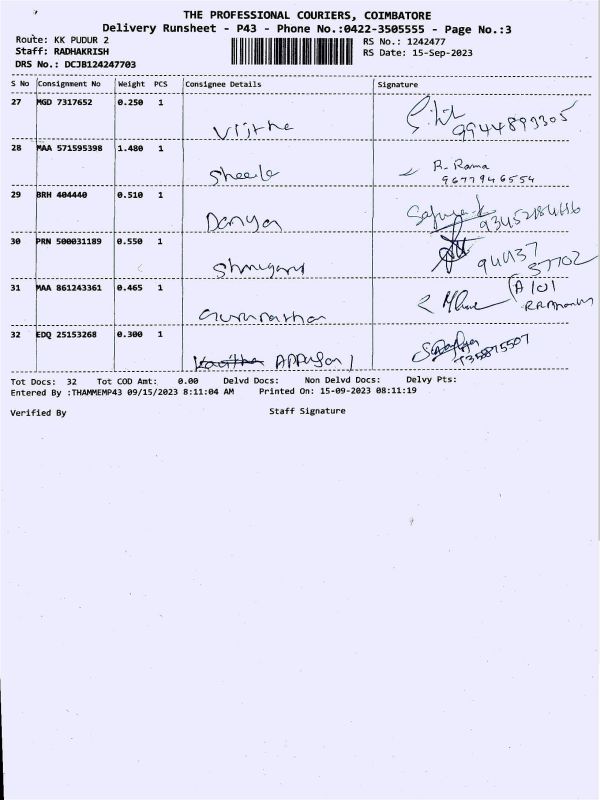 THE PROFESSIONAL COURIERS, COIMBATORE
Delivery Runsheet - P43 - Phone No.:0422-3505555 - Page No.:3
Route: KK PUDUR 2
Staff: RADHAKRISH
DRS No.: DCJB124247703
RS No.: 1242477
RS Date: 15-Sep-2023
S No Consignment No Weight PCS Consignee Details Signature
27 MGD 7317652 0.250 1
9944899305
28 MAA 571595398 1.480 1 Sheela R. Rama
9677946554
29 BRH 404440 0.510 1
30 PRN 500031189 0.550 1
94437
57702
31 MAA 861243361 0.465 1 A 101
32 EDQ 25153268 0.300 1
Tot Docs: 32 Tot COD Amt: 0.00 Delvd Docs: Non Delvd Docs: Delvy Pts:
Entered By :THAMMEMP43 09/15/2023 8:11:04 AM Printed On: 15-09-2023 08:11:19
Verified By Staff Signature